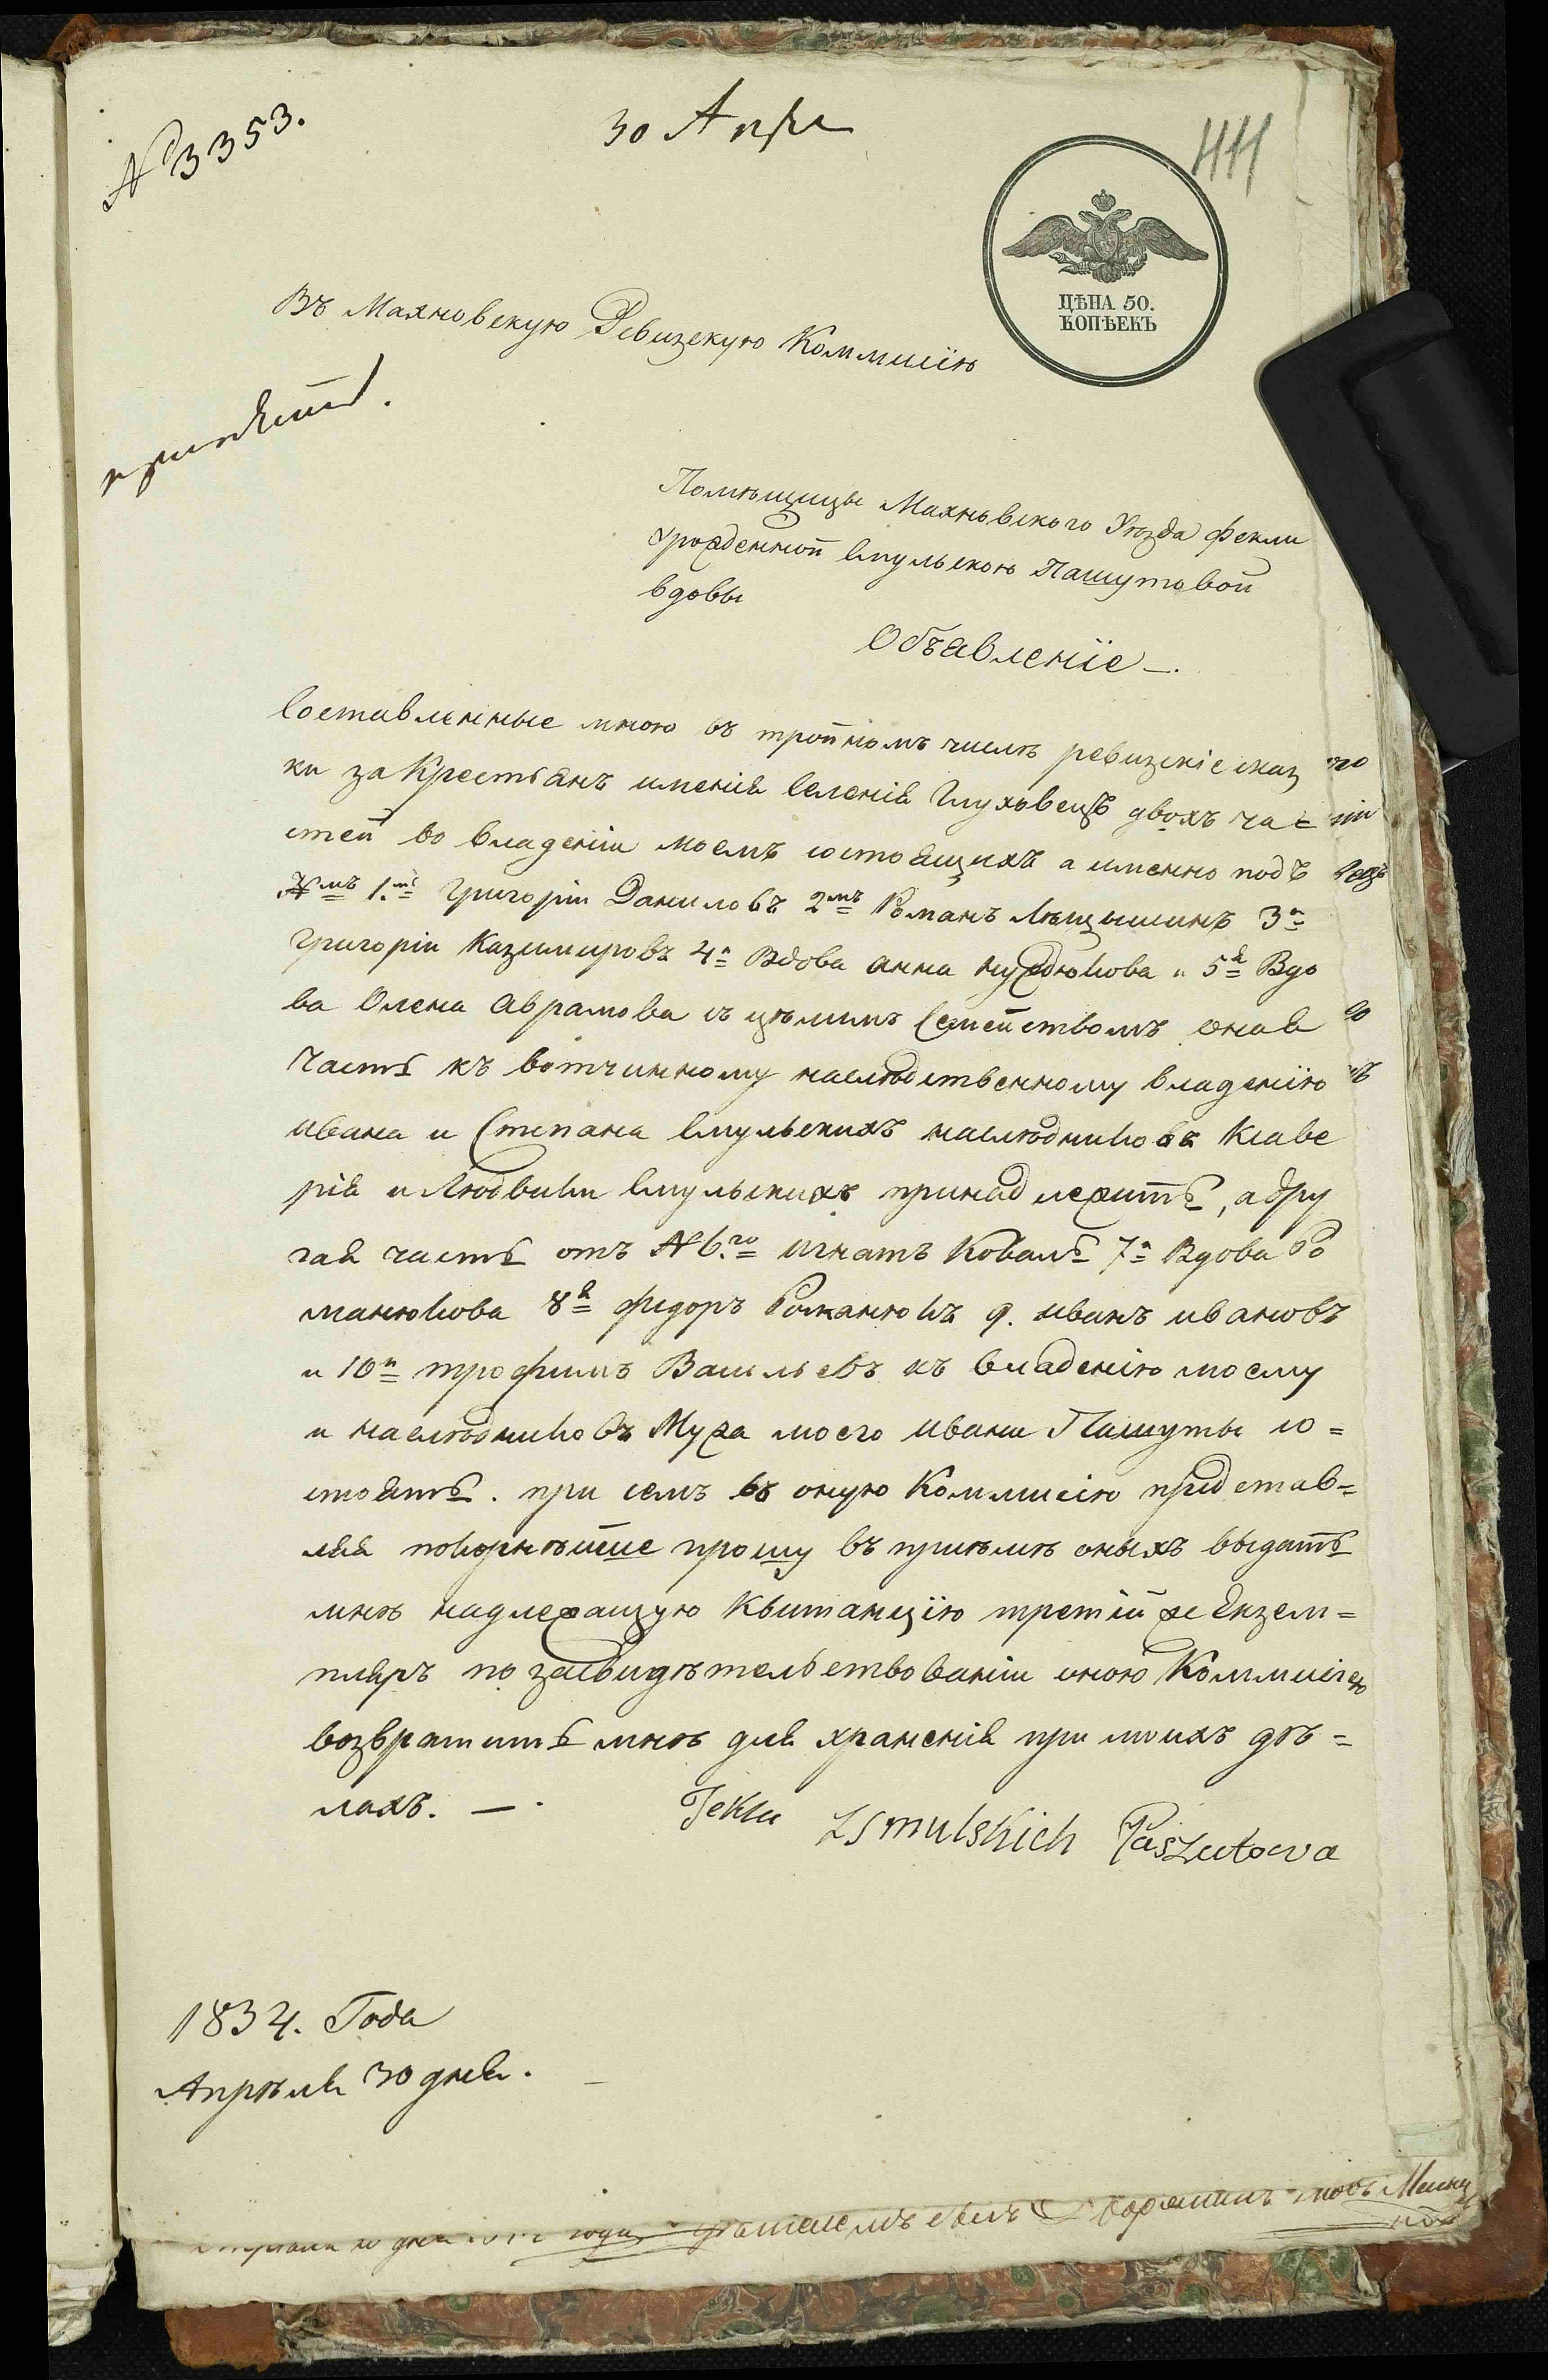 № 3353.
30 Апре
444
ЦѢНА 50.
КОПѢЕКЪ
Въ Махновскую Ревизскую Коммисію
принять.
Помѣщицы Махновского Уѣзда Фекли
урожденной Смульскою Пашутовой
вдовы
Объавленіе —.
Составленные мною въ тройномъ числѣ ревизскіе сказ
ки за Крестьянъ именія Селенія Глуховецъ двохъ ча
стей во владеніи моемъ состоящихъ а именно подъ
№мъ 1.мъ Григорій Даниловъ 2мъ Романъ 3м
Григорій Казимировъ 4м Вдова анна 5й Вдо
ва Олена Аврамова съ цѣлимъ Семействомъ оная
Часть къ вотчинному наслѣдственному владенію
ивана и Степана Смульскихъ наслѣдниковъ Ксаве
рія и Людвики Смульскихъ принадлежить, а дру
гая часть отъ № 6.го игнатъ Коваль 7м Вдова Ро
манюкова 8й Фидоръ Романюкъ 9. иванъ ивановъ
и 10м трофимъ Васильевъ къ владенію моему
и наслѣдниковъ Мужа моего ивана Пашуты со=
стоять. при семъ въ оную Коммисію представ=
ляя покорнѣйше прошу въ приѣмѣ оныхъ выдать
мнѣ надлежащую Квитанцію третій же Екзем=
пляръ по засвидѣтельствованіи оною Коммисіею
возвратить мнѣ для храненія при моихъ дѣ=
лахъ. — .
Tekla zSmulskich Paszutowa
1834. Года
Апрѣля 30 дня.